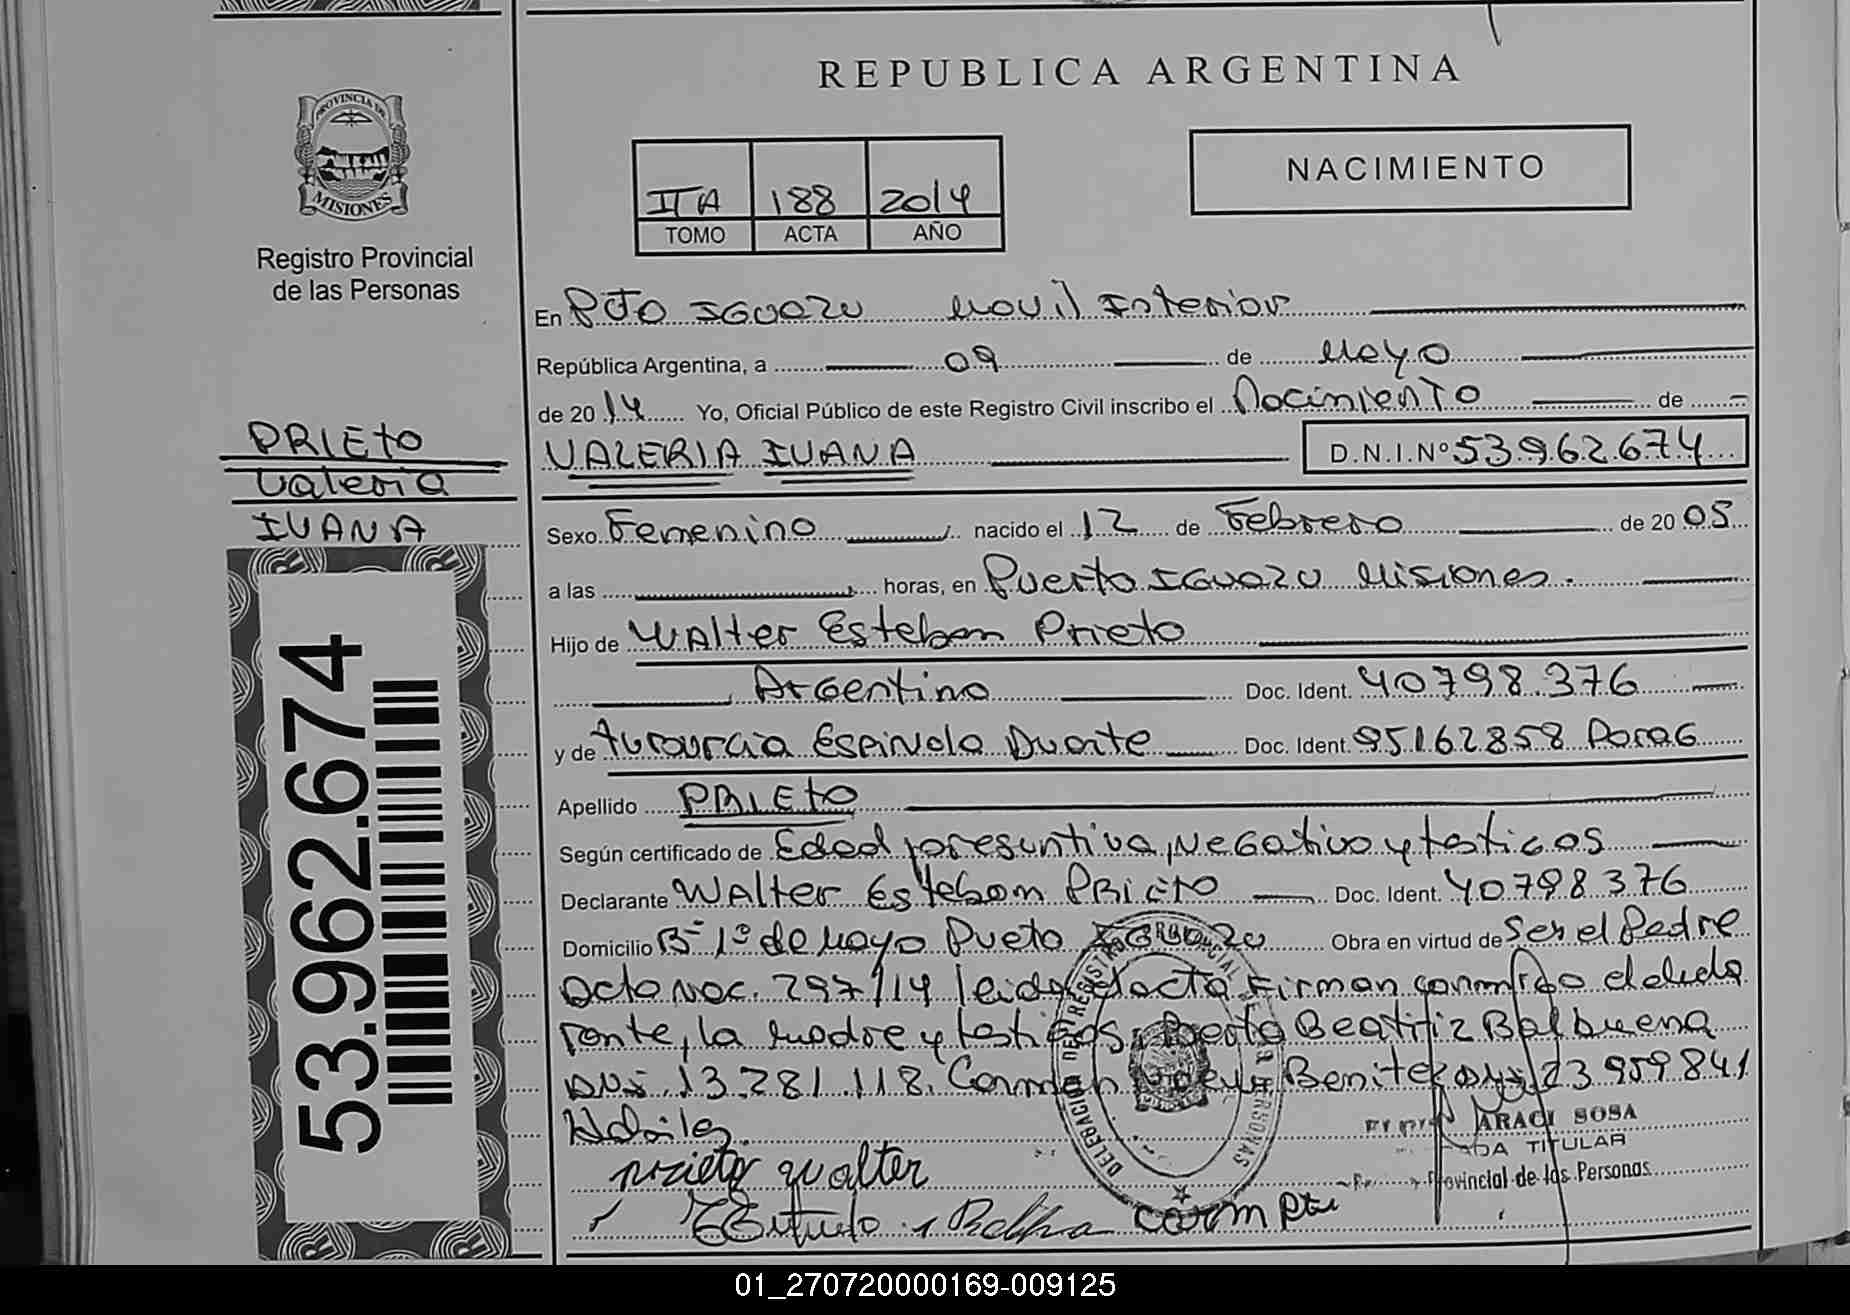 REPUBLICA ARGENTINA
PROVINCIA DE
MISIONES
Registro Provincial
de las Personas
NACIMIENTO
ITA 188 2014
TOMO ACTA AÑO
En Pto IGUAZU Movil Interior
República Argentina, a 09 de Mayo
de 2014 Yo, Oficial Público de este Registro Civil inscribo el Nacimiento de
VALERIA IVANA D.N.I.Nº 53.962.674
PRIETO
Valeria
IVANA
Sexo Femenino nacido el 12 de Febrero de 2005
a las horas, en Puerto IGUAZU Misiones.
Hijo de Walter Esteban Prieto
Argentino Doc. Ident. 40798.376
y de Espinola Duarte Doc. Ident. 95162858 Parag
Apellido PRIETO
Según certificado de Edad presuntiva, Negativo y testigos
Declarante Walter Esteban PRIETO Doc. Ident. 40798376
Domicilio Bº 1º de Mayo Pueto IGUAZU Obra en virtud de Ser el Padre
acta Nac. 297/14 leida el acta Firman conmigo el decla
rante, la madre y testigos, Beatriz Balbuena
DNI 13.281.118. Carmen Benitez DNI 23 959841
53.962.674
DELEGACION DEL REGISTRO PROVINCIAL DE LAS PERSONAS
ARACI SOSA
TITULAR
Provincial de las Personas
prieto walter
01_270720000169-009125